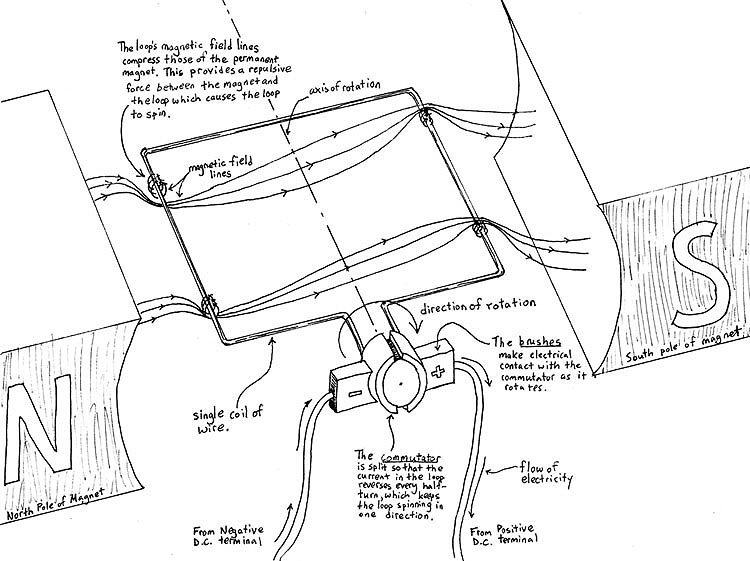 The loop's magnetic field lines
compress those of the permanent
magnet. This provides a repulsive
force between the magnet and
the loop which causes the loop
to spin.
axis of rotation
magnetic field
lines
S
South pole of magnet
direction of rotation
The brushes
make electrical
contact with the
commutator as it
rotates.
+
-
single coil of
wire.
N
North Pole of Magnet
The commutator
is split so that the
current in the loop
reverses every half-
turn, which keeps
the loop spinning in
one direction.
flow of
electricity
From Negative
D.C. terminal
From Positive
D.C. terminal